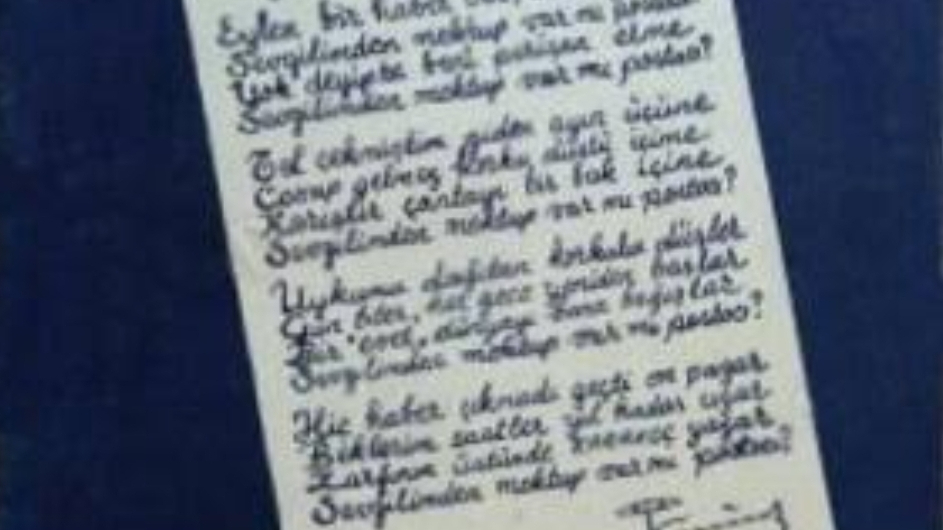 Eylen bir haber
Sevgilinden mektup var mı postacı
Yok deyipte beni perişan etme
Sevgilinden mektup var mı postacı?
Tel çekmiştim giden ayın üçüne
Cevap gelmez korku düştü içime
Karıştır çantayı bir bak içine
Sevgilinden mektup var mı postacı?
Uykumu dağıtan korkulu düşler
Gün biter, her gece yeniden başlar
Var dünyayı bana bağışlar
Sevgilinden mektup var mı postacı?
Hiç haber çıkmadı geçti on pazar
Beklerim saatler yıl kadar uzar
Zarfının üstünde yazar
Sevgilinden mektup var mı postacı?